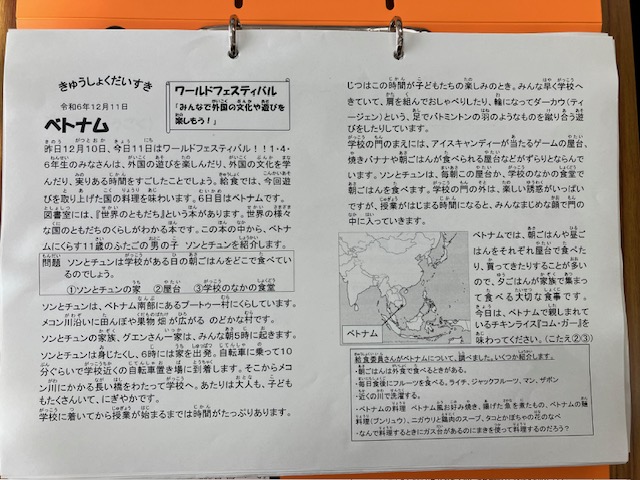 きゅうしょくだいすき
令和6年12月11日
ワールドフェスティバル
「みんなで外国の文化や遊びを
楽しもう！」
ベトナム
昨日12月10日、今日11日はワールドフェスティバル！！1・4・
6年生のみなさんは、外国の遊びを楽しんだり、外国の文化を学
んだり、実りある時間をすごしたことでしょう。給食では、今回遊
びを取り上げた国の料理を味わいます。6日目はベトナムです。
図書室には、『世界のともだち』という本があります。世界の様々
な国のともだちのくらしがわかる本です。この本の中から、ベトナ
ムにくらす11歳のふたごの男の子　ソンとチュンを紹介します。
問題　ソンとチュンは学校がある日の朝ごはんをどこで食べてい
るのでしょう。
①ソンとチュンの家　②屋台　③学校のなかの食堂
ソンとチュンは、ベトナム南部にあるブートゥー村にくらしています。
メコン川沿いに田んぼや果物畑が広がる のどかな村です。
ソンとチュンの家族、グエンさん一家は、みんな朝5時に起きます。
ソンとチュンは身じたくし、6時には家を出発。自転車に乗って10
分ぐらいで学校近くの自転車置き場に到着します。そこからメコ
ン川にかかる長い橋をわたって学校へ。あたりは大人も、子ども
もたくさんいて、にぎやかです。
学校に着いてから授業が始まるまでは時間がたっぷりあります。
じつはこの時間が子どもたちの楽しみのとき。みんな早く学校へ
きていて、肩を組んでおしゃべりしたり、輪になってダーカウ（ティ
ージェン）という、足でバトミントンの羽のようなものを蹴り合う遊
びをしたりしています。
学校の門のまえには、アイスキャンディーが当たるゲームの屋台、
焼きバナナや朝ごはんが食べられる屋台などがずらりとならんで
います。ソンとチュンは、毎朝この屋台か、学校のなかの食堂で
朝ごはんを食べます。学校の門の外は、楽しい誘惑がいっぱい
ですが、授業がはじまる時間になると、みんなまじめな顔で門の
中に入っていきます。
ベトナムでは、朝ごはんや昼ご
はんをそれぞれ屋台で食べた
り、買ってきたりすることが多い
ので、夕ごはんが家族で集まっ
て食べる大切な食事です。
今日は、ベトナムで親しまれて
いるチキンライス『コム・ガー』を
味わってください。（こたえ②③）
ベトナム
給食委員さんがベトナムについて、調べました。いくつか紹介します。
・朝ごはんは外で食べるときがある。
・毎日食後にフルーツを食べる。ライチ、ジャックフルーツ、マン、ザボン
・近くの川で洗濯する。
・ベトナムの料理　ベトナム風お好み焼き、揚げた魚を煮たもの、ベトナムの麺
料理（ブンリュウ）、ニガウリと鶏肉のスープ、タコとかぼちゃの花のなべ
・なんで料理するときにガス台があるのにまきを使って料理するのだろう？